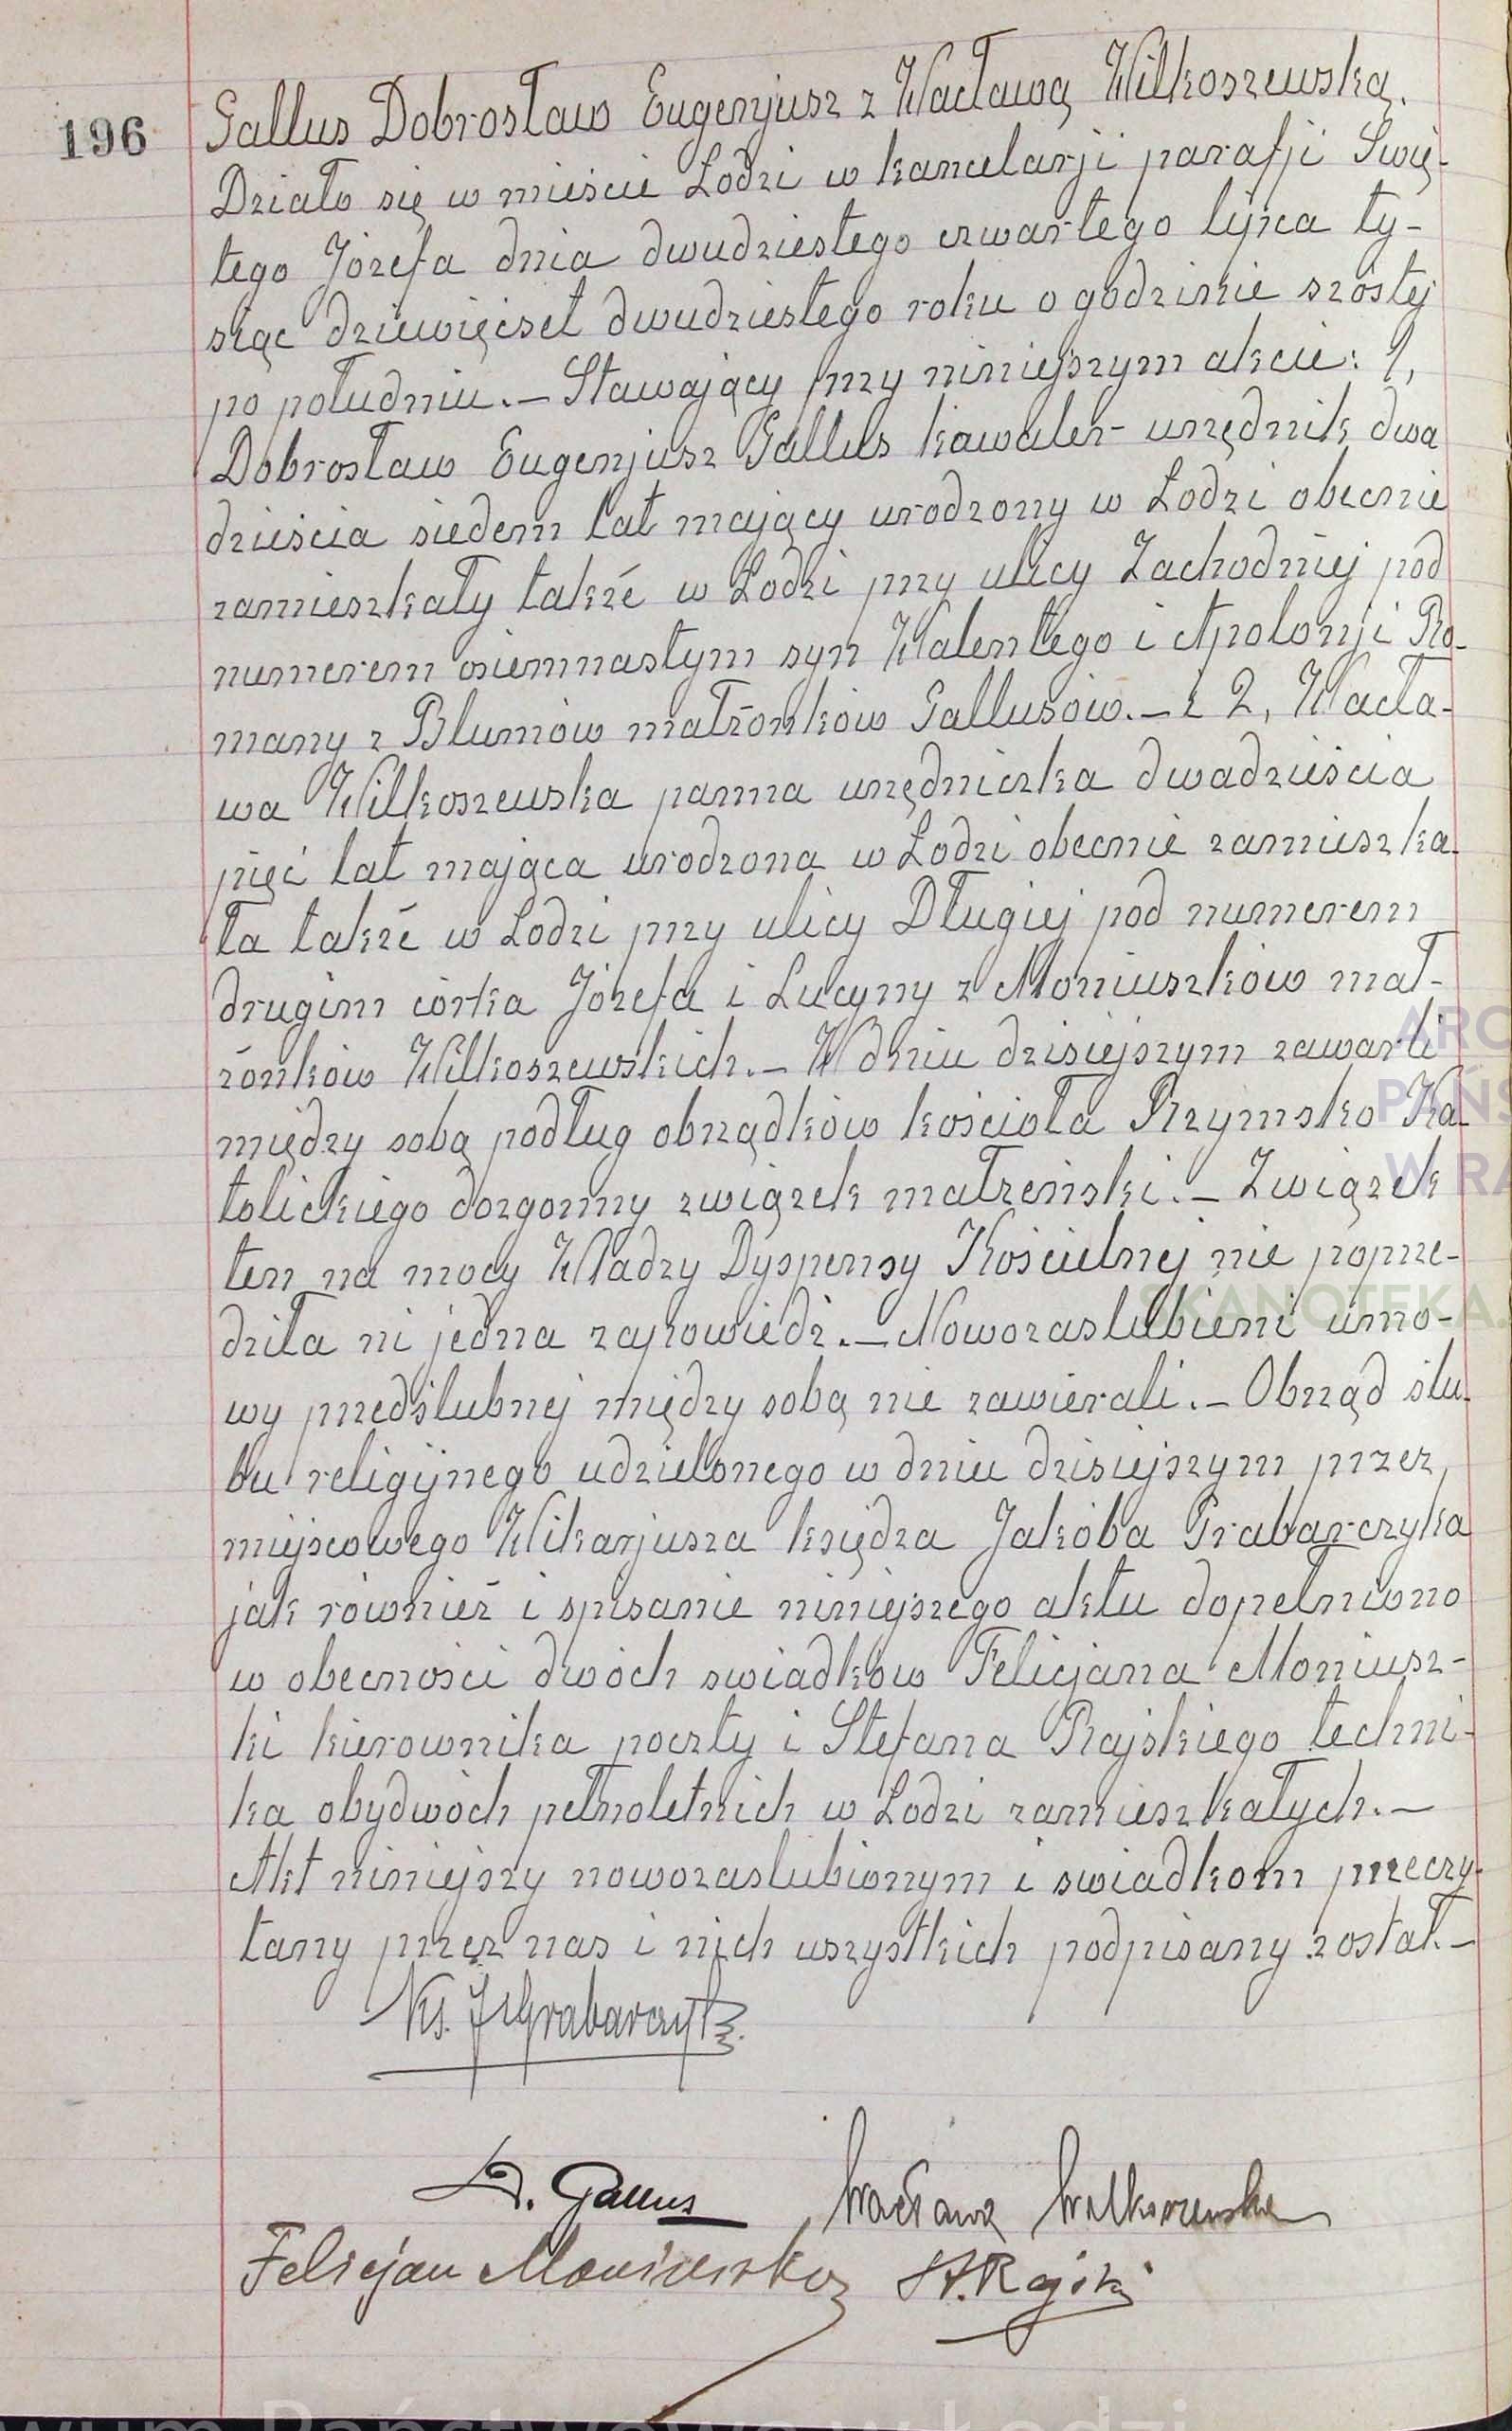 196
Gallus Dobrosław Eugenjusz z Wacławą Wilkoszewską.
Działo się w mieście Łodzi w kancelarji parafji Świę-
tego Józefa dnia dwudziestego czwartego lipca ty-
siąc dziewięćset dwudziestego roku o godzinie szóstej
po południu. – Stawający przy niniejszym akcie: 1,
Dobrosław Eugenjusz Gallus kawaler urzędnik dwa
dzieścia siedem lat mający urodzony w Łodzi obecnie
zamieszkały także w Łodzi przy ulicy Zachodniej pod
numerem osiemnastym syn Walentego i Apolonji Ro-
many z Blumów małżonków Gallusów. – i 2, Wacła-
wa Wilkoszewska panna urzędniczka dwadzieścia
pięć lat mająca urodzona w Łodzi obecnie zamieszka-
ła także w Łodzi przy ulicy Długiej pod numerem
drugim córka Józefa i Lucyny z Moniuszków mał-
żonków Wilkoszewskich. – W dniu dzisiejszym zawarli
między sobą podług obrządków kościoła Rzymsko Ka-
tolickiego dozgonny związek małżeński. – Związek
ten na mocy Władzy Dyspensy Kościelnej nie poprze-
dziła ni jedna zapowiedź. – Nowozaslubieni umo-
wy przedślubnej między sobą nie zawierali. – Obrząd ślu-
bu religijnego udzielonego w dniu dzisiejszym przez
miejscowego Wikarjusza księdza Jakóba Grabarczyka
jak również i spisanie niniejszego aktu dopełniono
w obecności dwóch swiadków Felicjana Moniusz-
ki kierownika poczty i Stefana Rajskiego techni-
ka obydwóch pełnoletnich w Łodzi zamieszkałych. –
Akt niniejszy nowozaslubionym i swiadkom przeczy-
tany przez nas i nich wszystkich podpisany został. –
Ks. J Grabarczyk
D. Gallus Wacława Wilkoszewska
Felicjan Moniuszko St. Rajski
ARC
PAŃS
W RA
SKANOTEKA
wum Państwowe w Łodzi